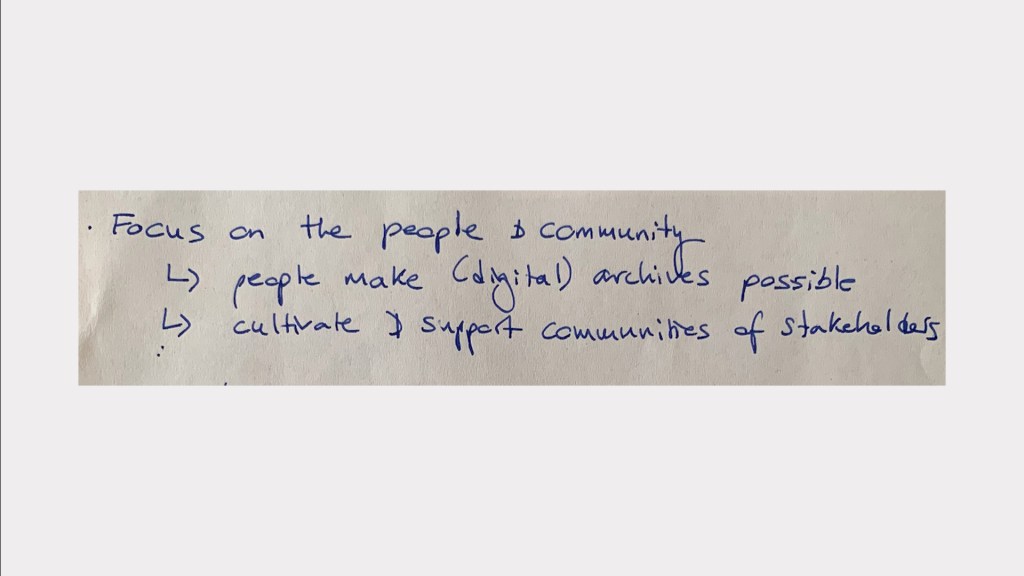 · Focus on the people & community
↳ people make (digital) archives possible
↳ cultivate & support communities of stakeholders